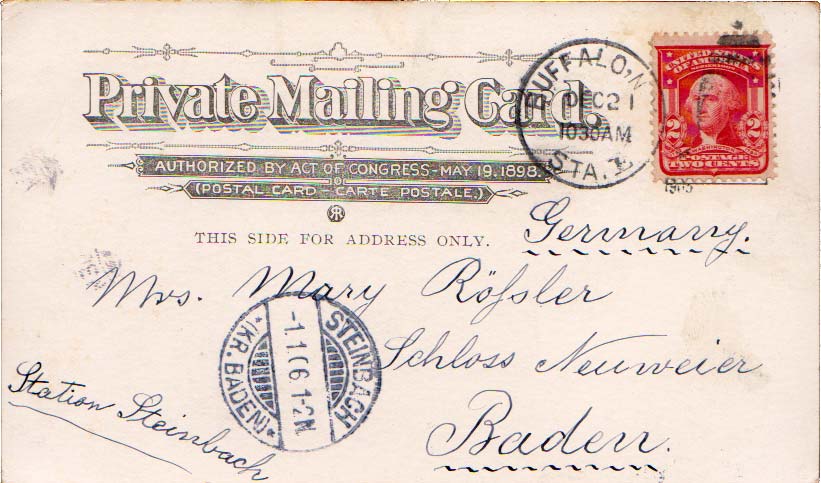 Private Mailing Card.
AUTHORIZED BY ACT OF CONGRESS-MAY 19, 1898.
(POSTAL CARD - CARTE POSTALE.)
THIS SIDE FOR ADDRESS ONLY.
BUFFALO, N
DEC 21
10 30 AM
STA.
UNITED STATES
OF AMERICA
2 2
POSTAGE
TWO CENTS
1905
Germany.
Mrs. Mary Rößler
Schloss Neuweier
Baden.
Station Steinbach
STEINBACH
-1.1.06.1-2N.
*(KR. BADEN)*